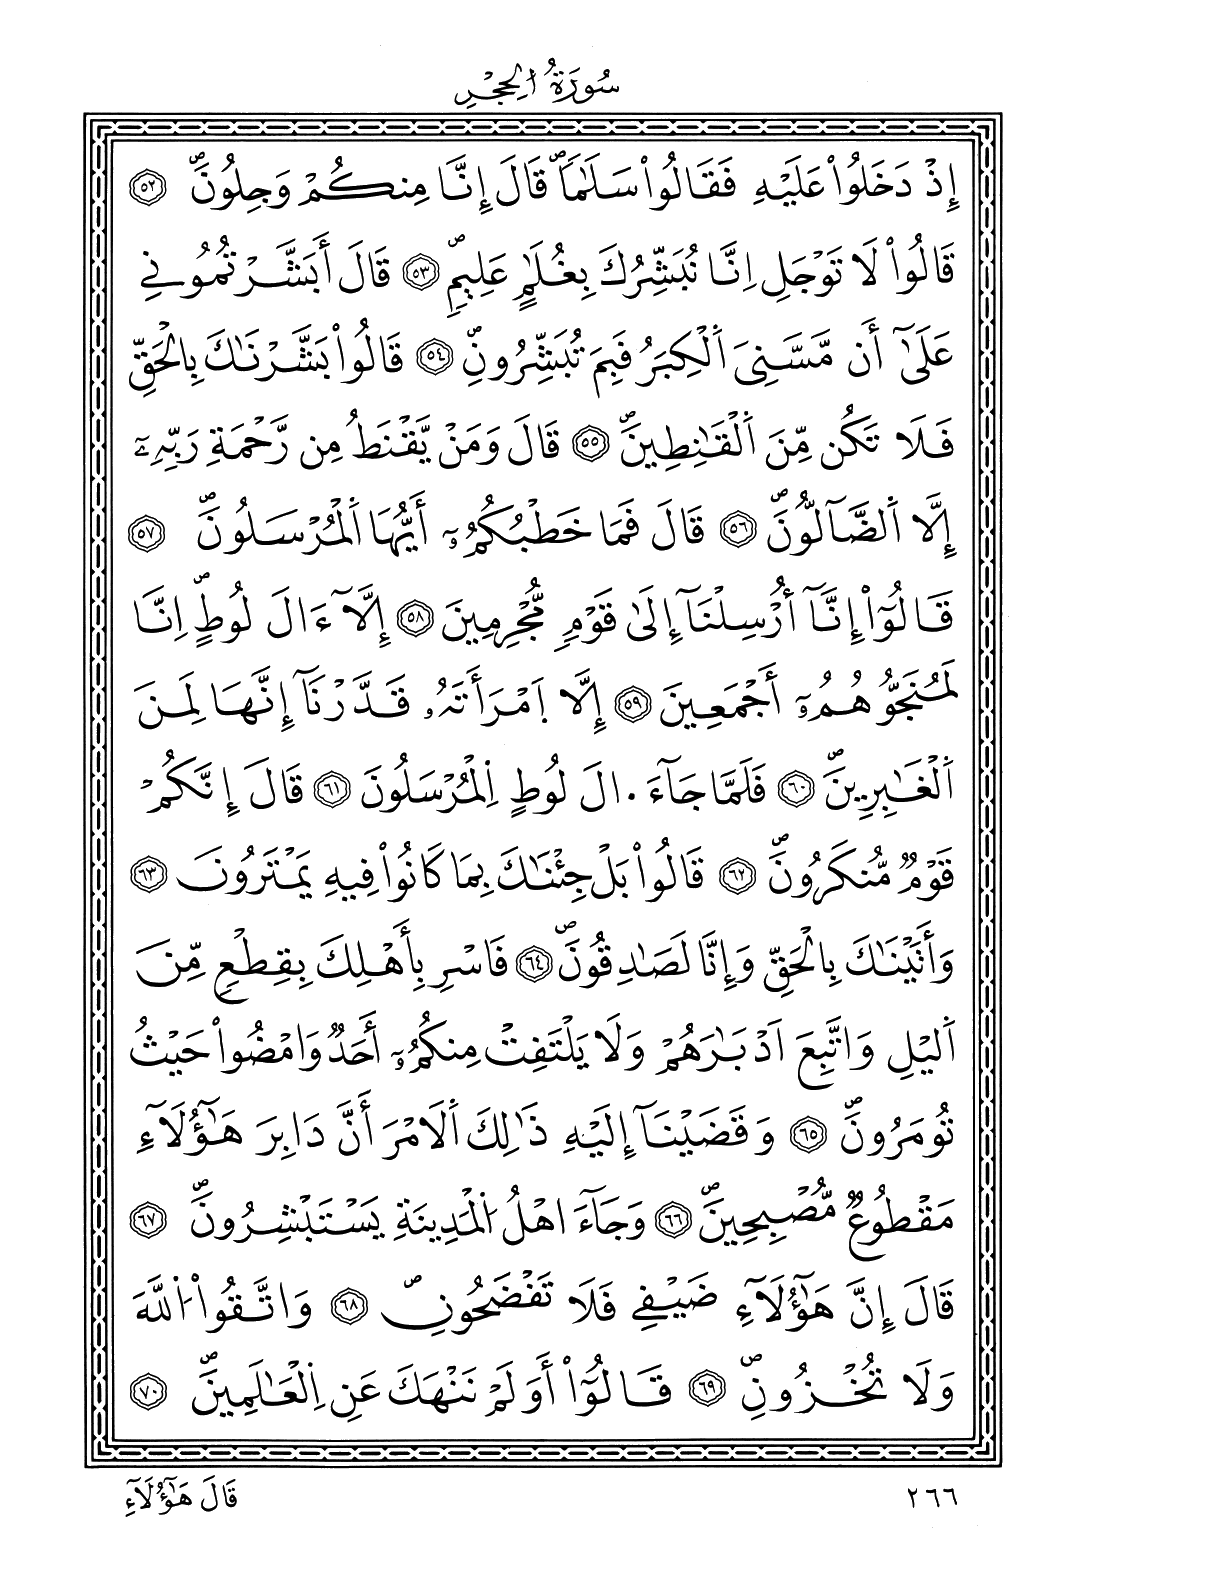 سُورَةُ الْحِجْرِ
إِذْ دَخَلُواْ عَلَيْهِ فَقَالُواْ سَلَٰماًۖ قَالَ إِنَّا مِنكُمْ وَجِلُونَۖ ٥٢
قَالُواْ لَا تَوْجَلِ اِنَّا نُبَشِّرُكَ بِغُلَٰمٍ عَلِيمٍۖ ٥٣ قَالَ أَبَشَّرْتُمُونِي
عَلَىٰٓ أَن مَّسَّنِيَ اَ۬لْكِبَرُ فَبِمَ تُبَشِّرُونِۖ ٥٤ قَالُواْ بَشَّرْنَٰكَ بِالْحَقِّ
فَلَا تَكُن مِّنَ اَ۬لْقَٰنِطِينَۖ ٥٥ قَالَ وَمَنْ يَّقْنَطُ مِن رَّحْمَةِ رَبِّهِۦٓ
إِلَّا اَ۬لضَّآلُّونَۖ ٥٦ قَالَ فَمَا خَطْبُكُمُۥٓ أَيُّهَا اَ۬لْمُرْسَلُونَۖ ٥٧
قَالُوٓاْ إِنَّآ أُرْسِلْنَآ إِلَىٰ قَوْمٍ مُّجْرِمِينَ ٥٨ إِلَّآ ءَالَ لُوطٍۖ اِنَّا
لَمُنَجُّوهُمُۥٓ أَجْمَعِينَ ٥٩ إِلَّا اَ۪مْرَأَتَهُۥ قَدَّرْنَآ إِنَّهَا لَمِنَ
اَ۬لْغَٰبِرِينَۖ ٦٠ فَلَمَّا جَآءَ ا۬لَ لُوطٍ اِ۬لْمُرْسَلُونَ ٦١ قَالَ إِنَّكُمْ
قَوْمٌ مُّنكَرُونَۖ ٦٢ قَالُواْ بَلْ جِئْنَٰكَ بِمَا كَانُواْ فِيهِ يَمْتَرُونَ ٦٣
وَأَتَيْنَٰكَ بِالْحَقِّ وَإِنَّا لَصَٰدِقُونَۖ ٦٤ فَاسْرِ بِأَهْلِكَ بِقِطْعٍ مِّنَ
اَ۬ليْلِ وَاتَّبِعَ اَدْبَٰرَهُمْ وَلَا يَلْتَفِتْ مِنكُمُۥٓ أَحَدٌ وَامْضُواْ حَيْثُ
تُومَرُونَۖ ٦٥ وَقَضَيْنَآ إِلَيْهِ ذَٰلِكَ اَ۬لَامْرَ أَنَّ دَابِرَ هَٰٓؤُلَآءِ
مَقْطُوعٌ مُّصْبِحِينَۖ ٦٦ وَجَآءَ اهْلُ اُ۬لْمَدِينَةِ يَسْتَبْشِرُونَۖ ٦٧
قَالَ إِنَّ هَٰٓؤُلَآءِ ضَيْفِي فَلَا تَفْضَحُونِۖ ٦٨ وَاتَّقُواْ اُ۬للَّهَ
وَلَا تُخْزُونِۖ ٦٩ قَالُوٓاْ أَوَلَمْ نَنْهَكَ عَنِ اِ۬لْعَٰلَمِينَۖ ٧٠
قَالَ هَٰٓؤُلَآءِ
٢٦٦